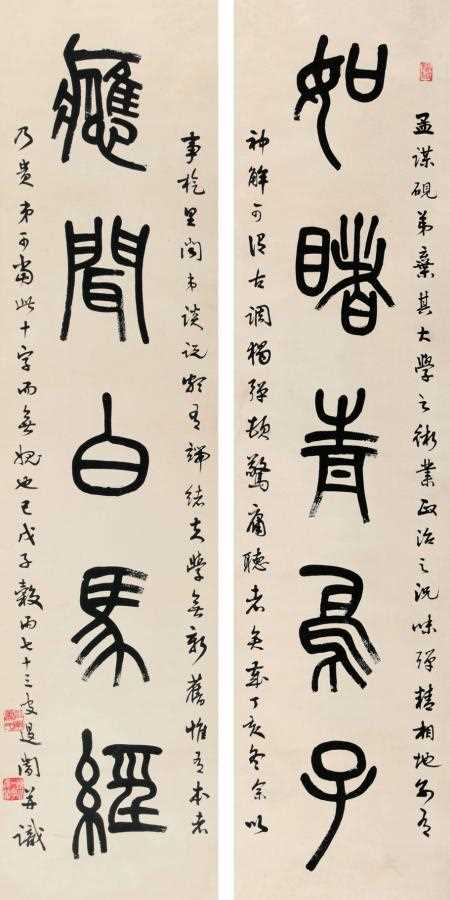 如睹青鳥子
應聞白馬經
孟謀硯弟棄其大學之術業政治之況味殫精相地別有
神解可謂古調獨彈頓驚庸聽者矣歲丁亥冬余以
事旋里閭弟談說頗有端緒夫學無新舊惟有本者
乃貴弟可當此十字而無媿也已戊子穀雨七十三叟退闇并識